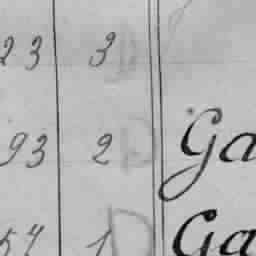 23 3 D
93 2 D Ga
57 1 D Ga